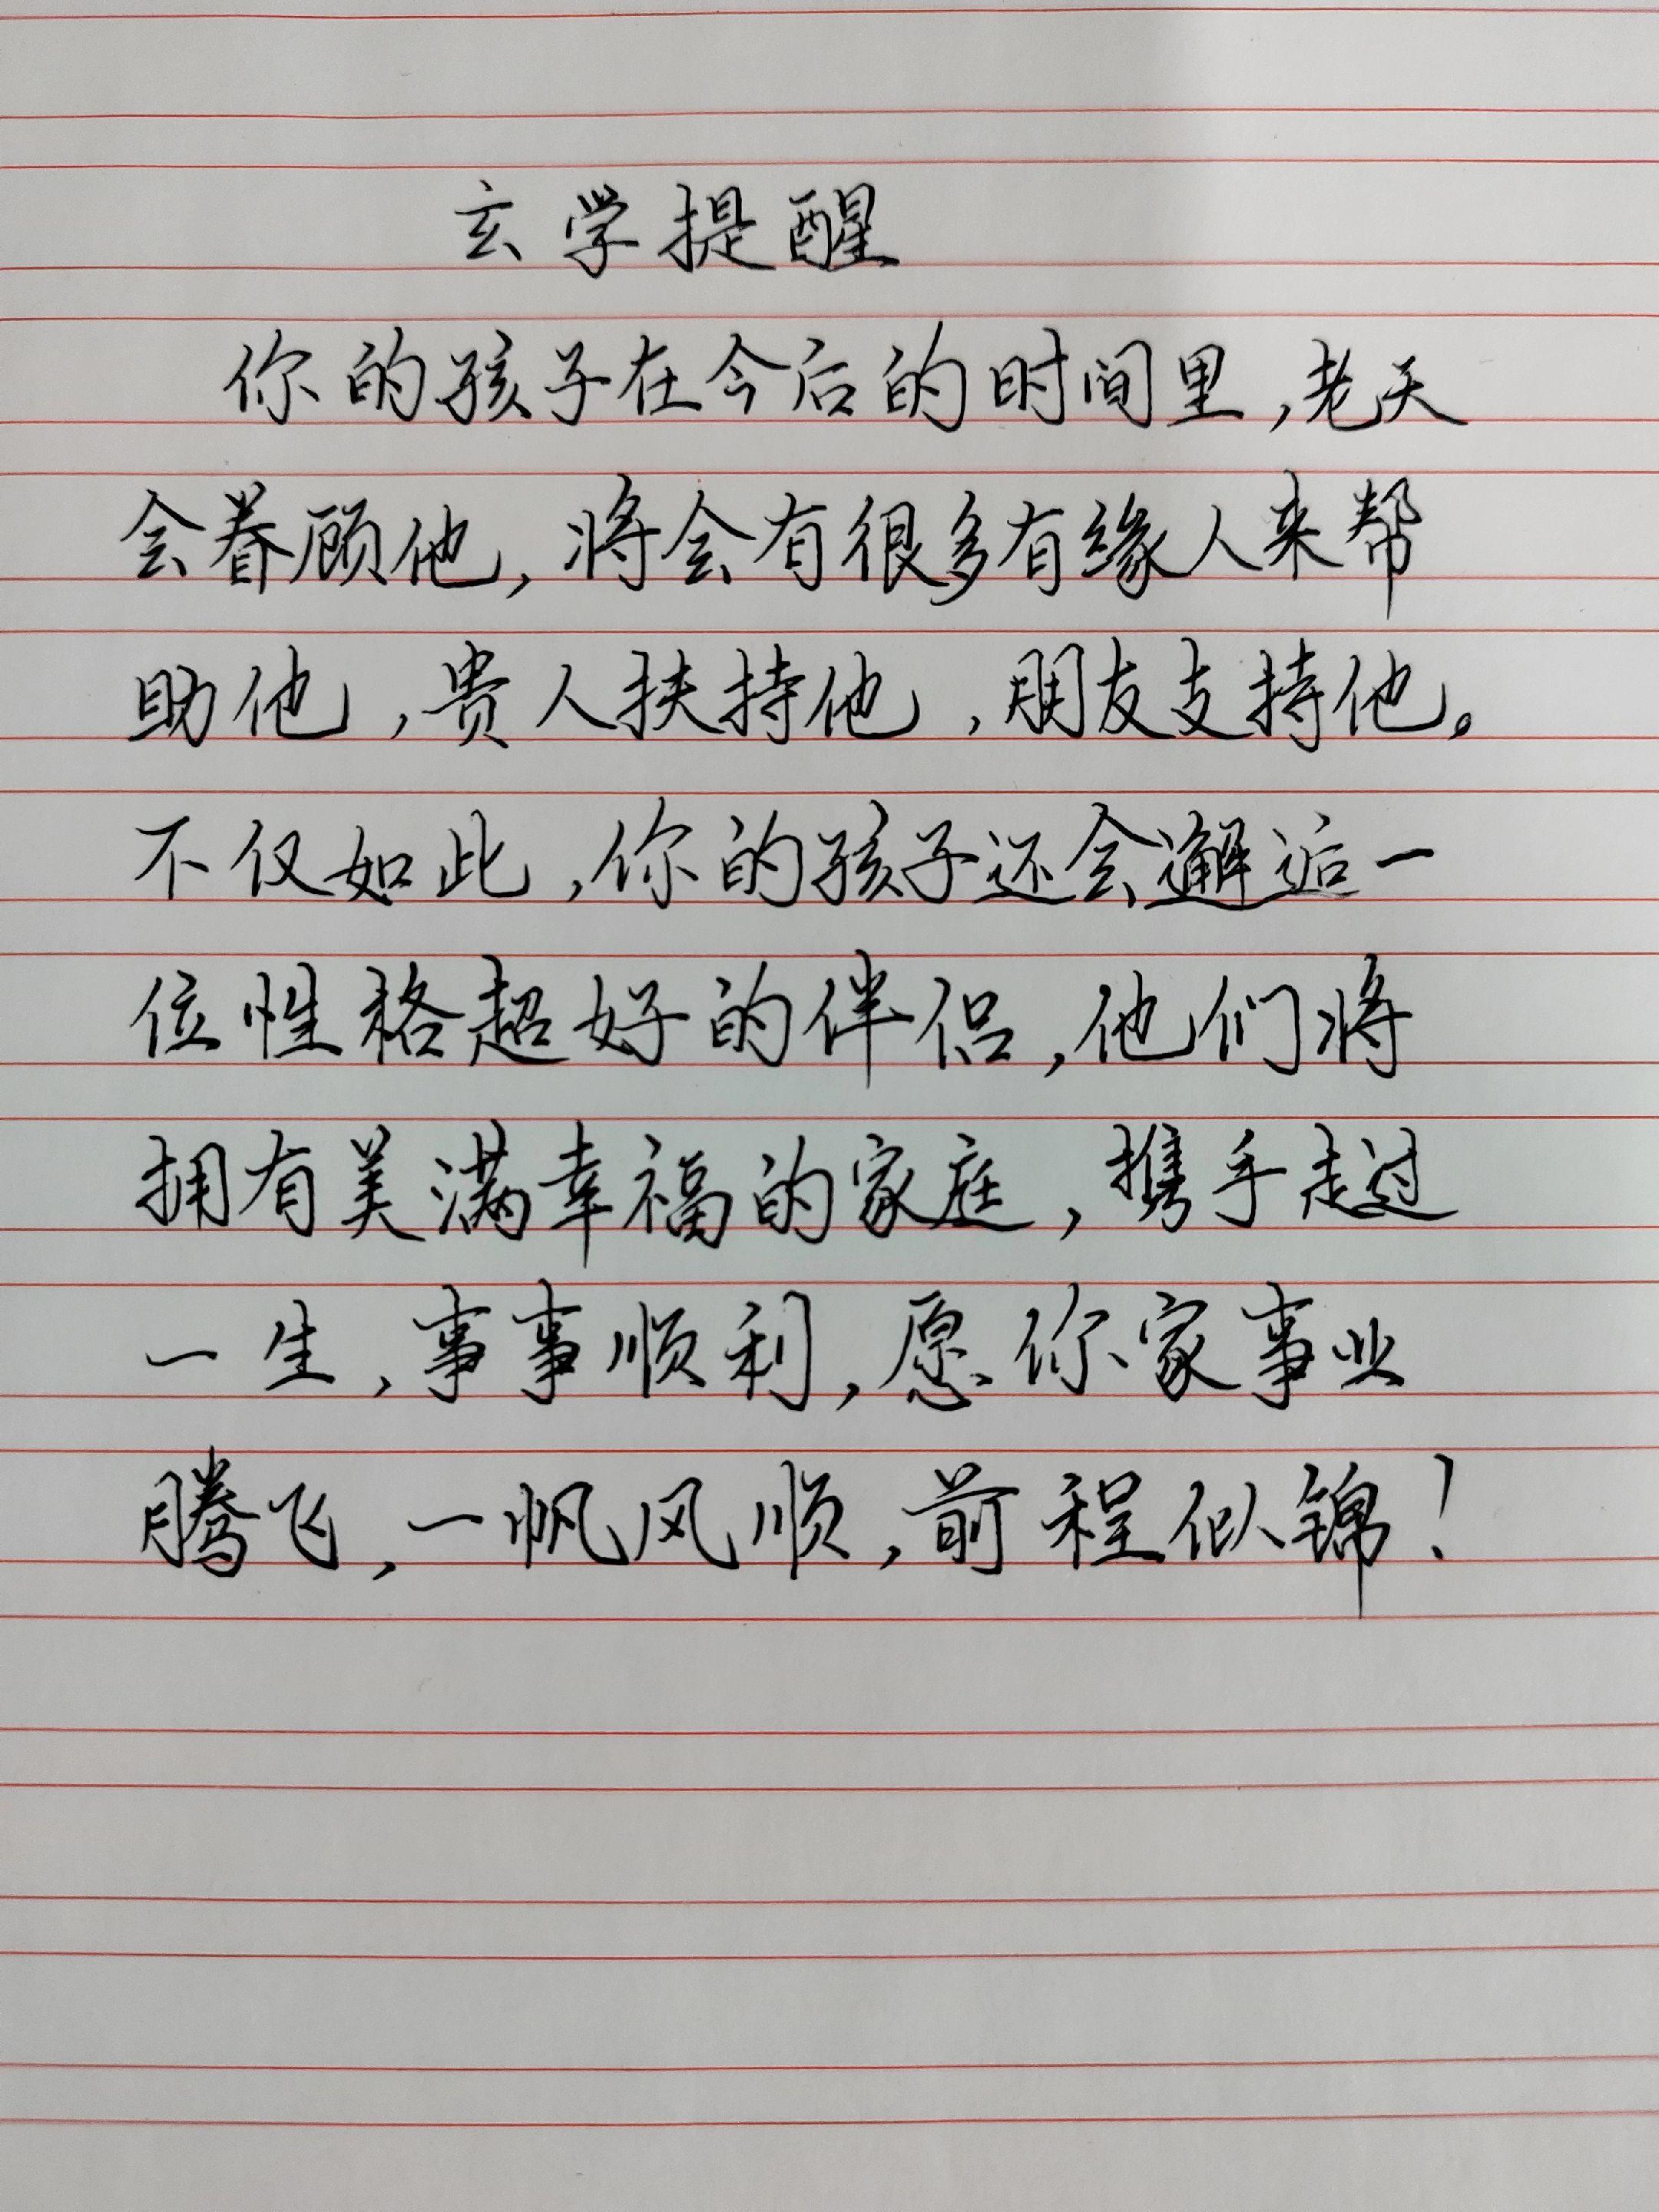 玄学提醒
你的孩子在今后的时间里,老天
会眷顾他,将会有很多有缘人来帮
助他,贵人扶持他,朋友支持他。
不仅如此,你的孩子还会邂逅一
位性格超好的伴侣,他们将
拥有美满幸福的家庭,携手走过
一生,事事顺利,愿你家事业
腾飞,一帆风顺,前程似锦!